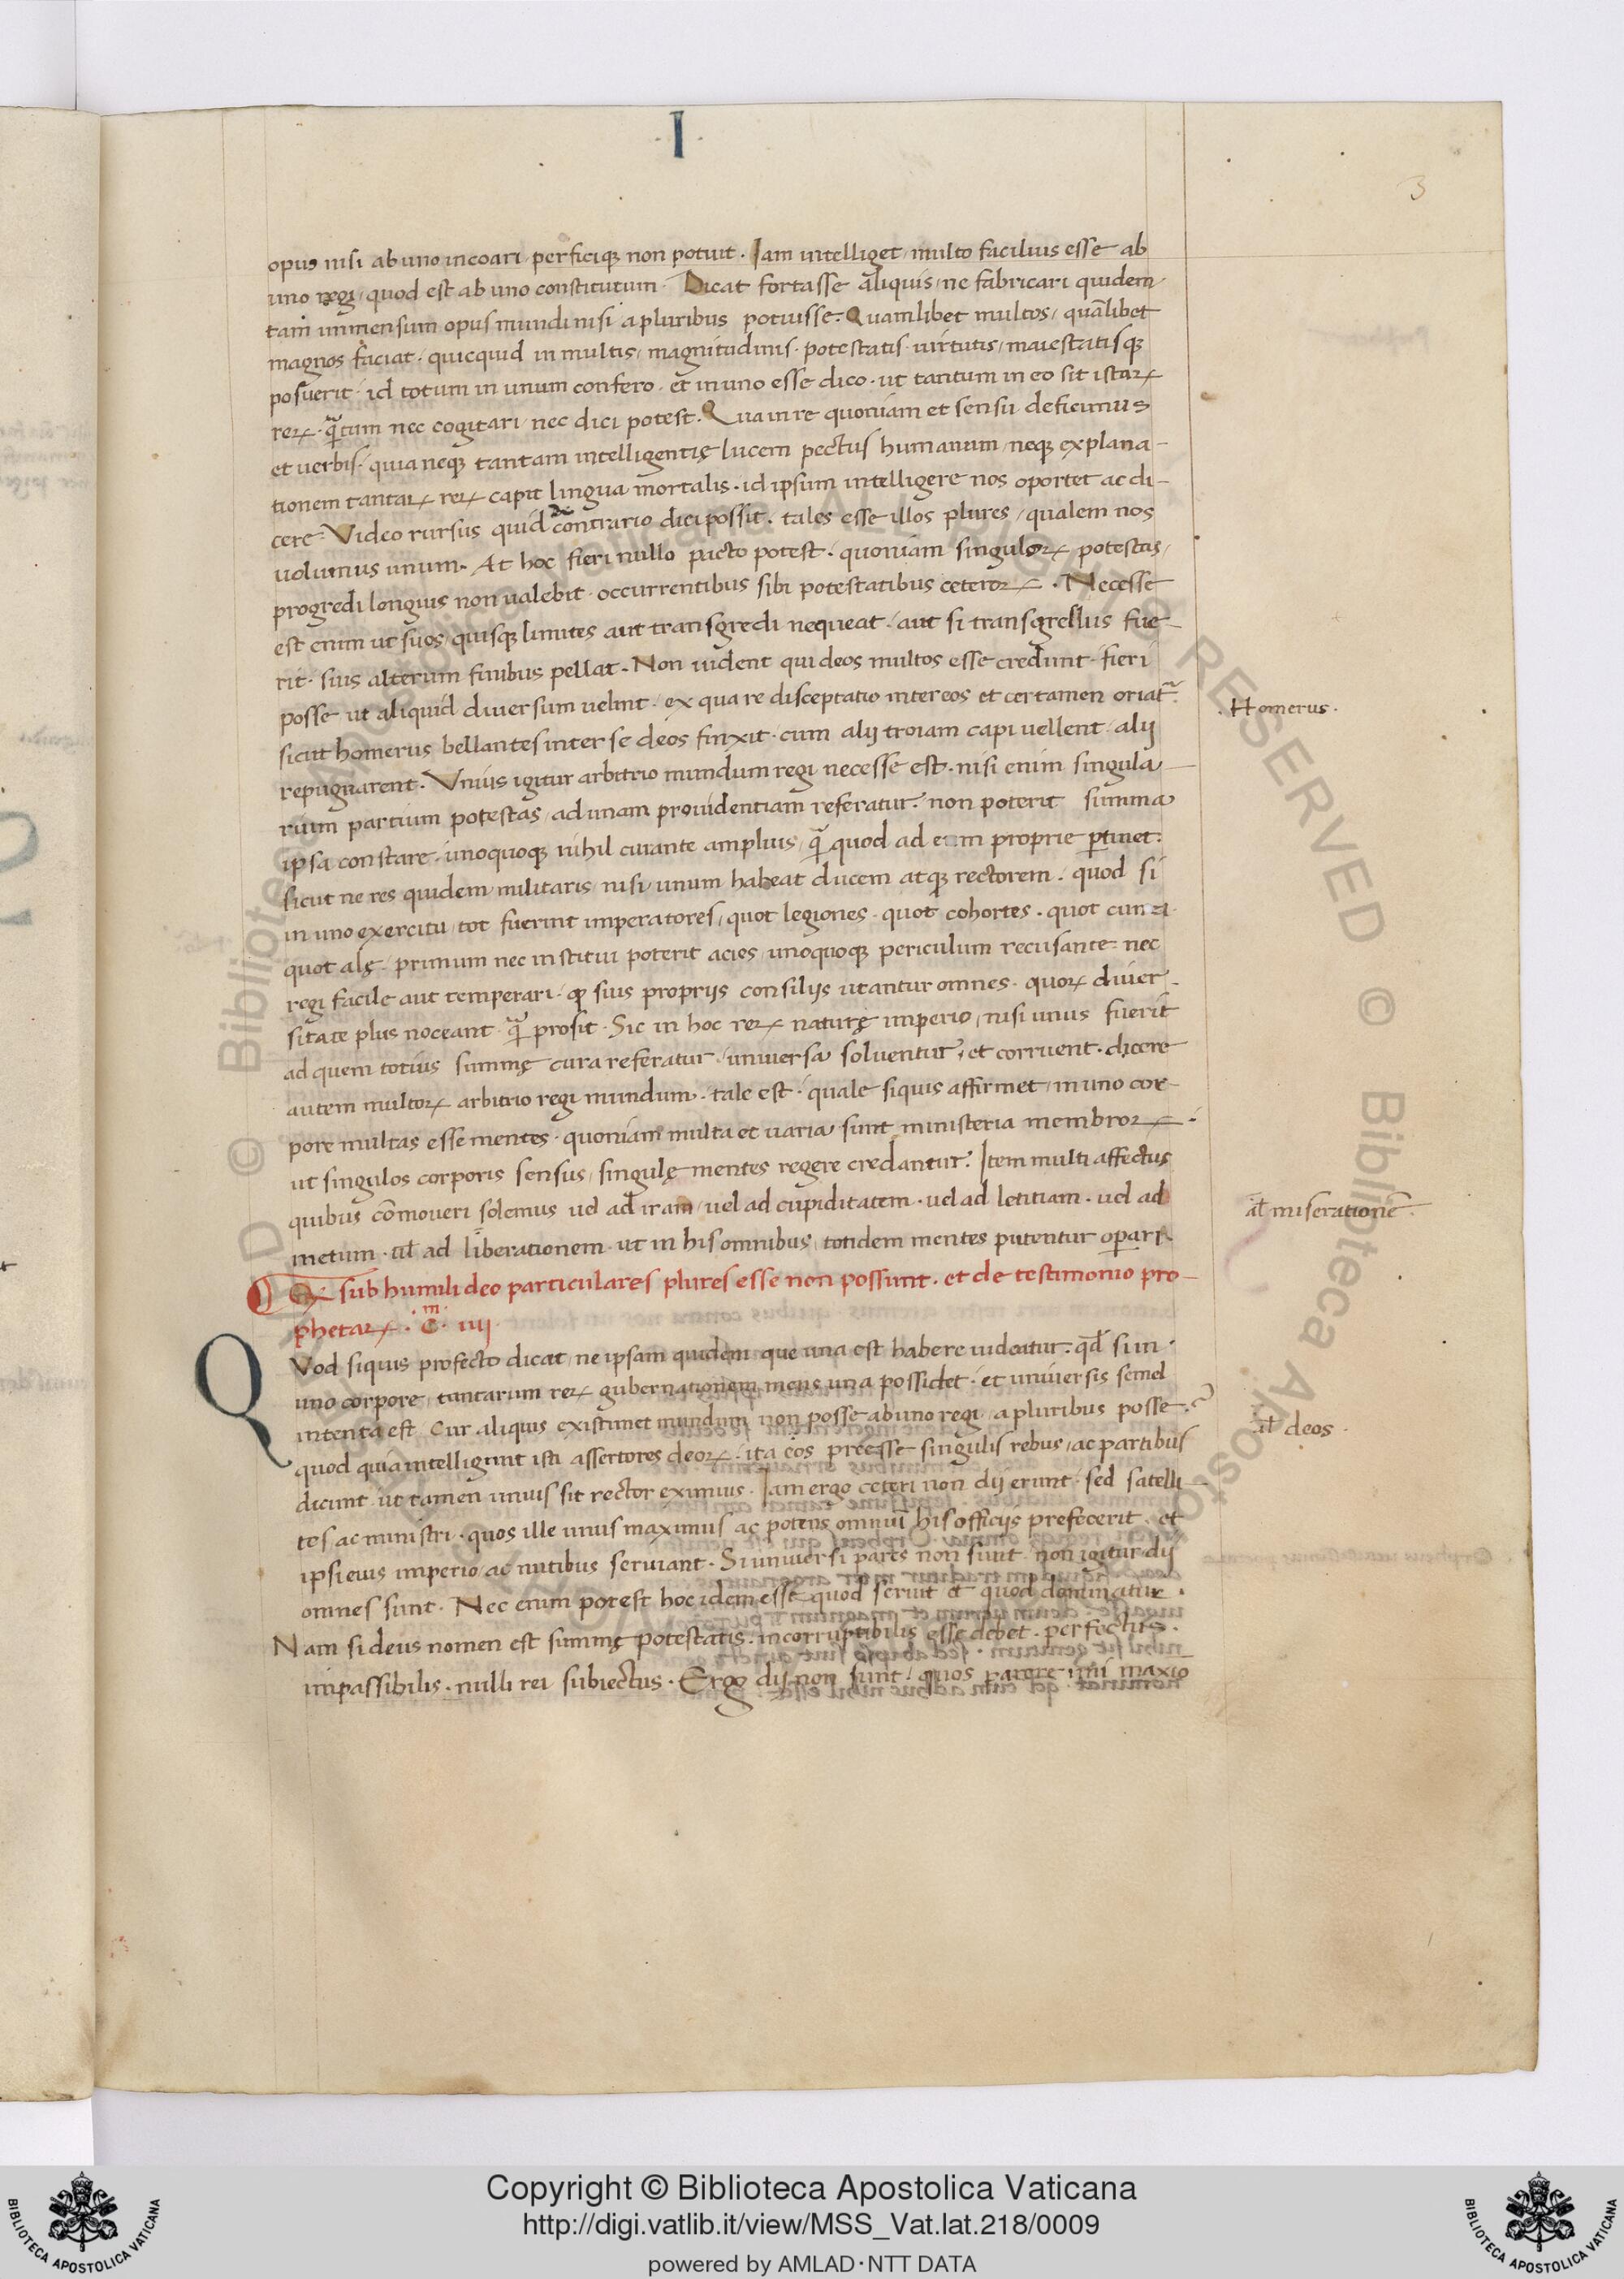 I
3
opus nisi ab uno incoari perficiq; non potuit. Iam intelliget multo facilius esse ab
uno regi, quod est ab uno constitutum. Dicat fortasse aliquis, ne fabricari quidem
tam immensum opus mundi nisi a pluribus potuisse. Quamlibet multos, quālibet
magnos faciat. quicquid in multis, magnitudinis. potestatis. uirtutis, maiestatisq;
posuerit. id totum in unum confero. et in uno esse dico. ut tantum in eo sit istaꝝ
reꝝ. quātum nec cogitari, nec dici potest. Qua in re quoniam et sensu deficimus
et uerbis. quia neq; tantam intelligentię lucem pectus humanum, neq; explana-
tionem tantaꝝ reꝝ capit lingua mortalis. id ipsum intelligere nos oportet ac di-
cere. Video rursus quid contrario dici possit. tales esse illos plures, qualem nos
uolumus unum. At hoc fieri nullo pacto potest. quoniam singuloꝝ potestas,
progredi longius non ualebit. occurrentibus sibi potestatibus ceteroꝝ. Necesse
est enim ut suos quisq; limites aut transgredi nequeat. aut si transgressus fue-
rit. suis alterum finibus pellat. Non uident qui deos multos esse credunt. fieri
posse ut aliquid diuersum uelint. ex qua re disceptatio inter eos et certamen oriat᷑.
sicut homerus bellantes inter se deos finxit. cum alij troiam capi uellent. alij
repugnarent. Vnius igitur arbitrio mundum regi necesse est. nisi enim singula-
rum partium potestas, ad unam prouidentiam referatur. non poterit summa
ipsa constare. unoquoq; nihil curante amplius, quā quod ad eum proprie ꝑtinet.
sicut ne res quidem militaris, nisi unum habeat ducem atq; rectorem. quod si
in uno exercitu, tot fuerint imperatores, quot legiones. quot cohortes. quot cunei.
quot alę. primum nec institui poterit acies, unoquoq; periculum recusante. nec
regi facile aut temperari. ꝙ suis proprijs consilijs utantur omnes. quoꝝ diuer-
sitate plus noceant. quā prosit. Sic in hoc reꝝ naturę imperio, nisi unus fuerit
ad quem totius summę cura referatur. uniuersa soluentur, et corruent. dicere
autem multoꝝ arbitrio regi mundum. tale est. quale siquis affirmet, in uno cor-
pore multas esse mentes. quoniam multa et uaria sunt ministeria membroꝝ.
ut singulos corporis sensus, singulę mentes regere credantur. Item multi affectus
quibus cōmoueri solemus uel ad iram, uel ad cupiditatem. uel ad letitiam. uel ad
metum. ul̄ ad liberationem. ut in his omnibus, totidem mentes putentur oꝑari.
sub humili deo particulares plures esse non possunt. et de testimonio pro-
phetaꝝ. C.m iiij
QVod siquis profecto dicat, ne ipsam quidem que una est habere uideatur. qđ si in
uno corpore, tantarum reꝝ gubernationem mens una possidet. et uniuersis semel
intenta est. Cur aliquis existimet mundum non posse ab uno regi, a pluribus posse.
quod quia intelligunt isti assertores deoꝝ. ita eos preesse singulis rebus, ac partibus
dicunt. ut tamen unus sit rector eximius. Iam ergo ceteri non dij erunt. sed satelli-
tes ac ministri. quos ille unus maximus ac potens omniū his officijs prefecerit. et
ipsi eius imperio, ac nutibus seruiant. Si uniuersi pares non sunt. non igitur dij
omnes sunt. Nec enim potest hoc idem esse quod seruit et quod dominatur.
Nam si deus nomen est summę potestatis. incorruptibilis esse debet. perfectus.
impassibilis. nulli rei subiectus. Ergo dij non sunt, quos parere uni maxīo
. Homerus .
al̄ miserationē.
al̄ deos.
D © Biblioteca Apostolica Vaticana ALL RIGHTS RESERVED © Biblioteca Apostolica
Copyright © Biblioteca Apostolica Vaticana
http://digi.vatlib.it/view/MSS_Vat.lat.218/0009
powered by AMLAD·NTT DATA
BIBLIOTECA APOSTOLICA VATICANA
BIBLIOTECA APOSTOLICA VATICANA